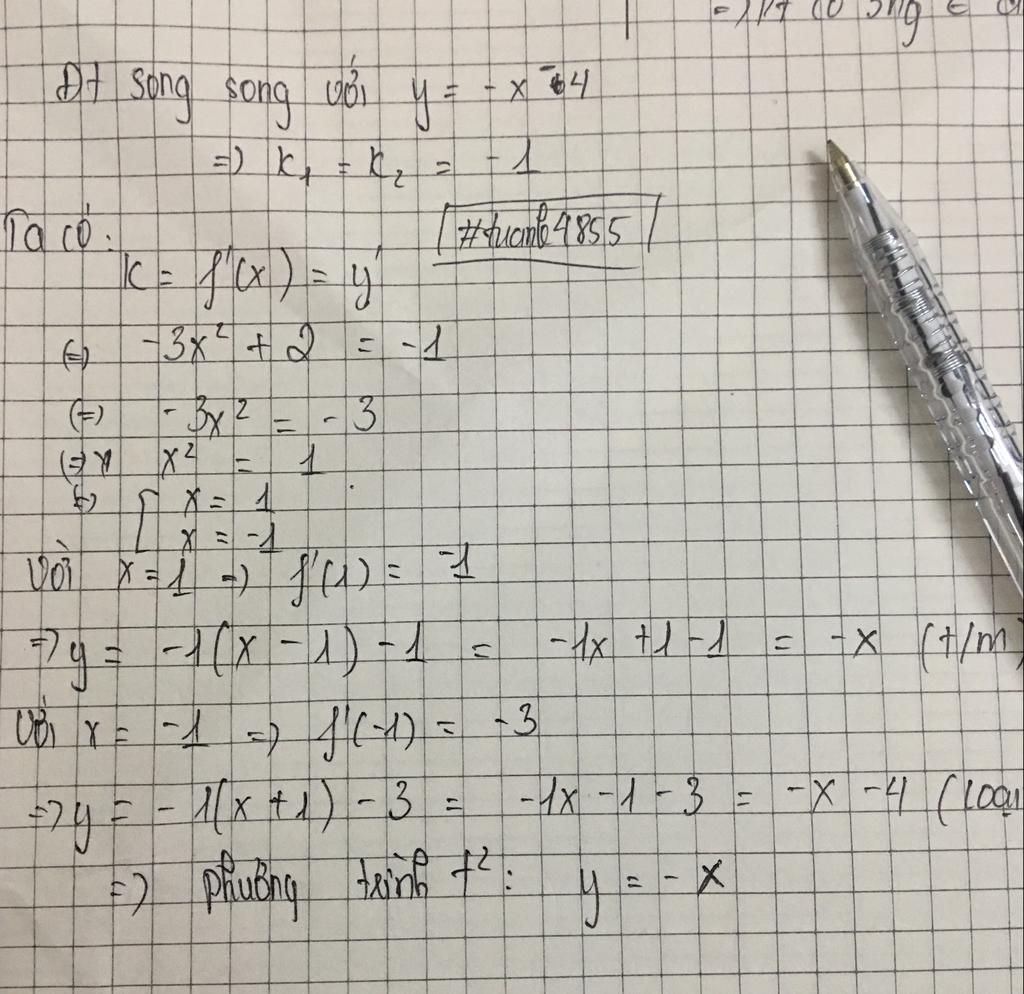 Đt song song với y = -x -4
=> k₁ = k₂ = -1
Ta có:
#tuanh4855
k = f'(x) = y'
(=) -3x² + 2 = -1
(=) -3x² = -3
(=) x² = 1
(=) [ x = 1
x = -1
Với x = 1 => f'(1) = -1
=> y = -1(x - 1) - 1 = -1x + 1 - 1 = -x (t/m)
Với x = -1 => f'(-1) = -3
=> y = -1(x + 1) - 3 = -1x - 1 - 3 = -x - 4 (loại
=> phương trình t²: y = -x